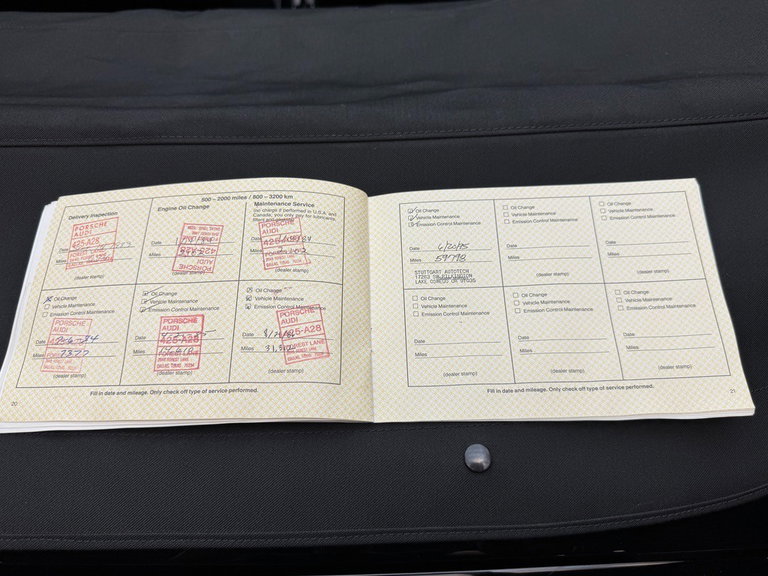 500 – 2000 miles / 800 – 3200 km
Delivery Inspection
PORSCHE
AUDI
425-A28
Date
Miles
(dealer stamp)
Engine Oil Change
Date
Miles
425-A28
PORSCHE
AUDI
(dealer stamp)
Maintenance Service
(no charge if performed in U.S.A. and
Canada; you only pay for lubricants,
PORSCHE
AUDI
Date
Miles
(dealer stamp)
Oil Change
Vehicle Maintenance
Emission Control Maintenance
PORSCHE
AUDI
Date
Miles 2322
(dealer stamp)
Oil Change
Vehicle Maintenance
Emission Control Maintenance
PORSCHE
AUDI
Date
Miles
(dealer stamp)
Oil Change
Vehicle Maintenance
Emission Control Maintenance
PORSCHE
AUDI
425-A28
FOREST LANE
Date
Miles
(dealer stamp)
Fill in date and mileage. Only check off type of service performed.
20
Oil Change
Vehicle Maintenance
Emission Control Maintenance
Date 6/20/95
Miles 59798
STUTTGART AUTOTECH
LAKE OSWEGO OR 97035
Oil Change
Vehicle Maintenance
Emission Control Maintenance
Date
Miles
(dealer stamp)
Oil Change
Vehicle Maintenance
Emission Control Maintenance
Date
Miles
(dealer stamp)
Oil Change
Vehicle Maintenance
Emission Control Maintenance
Date
Miles
(dealer stamp)
Oil Change
Vehicle Maintenance
Emission Control Maintenance
Date
Miles
(dealer stamp)
Oil Change
Vehicle Maintenance
Emission Control Maintenance
Date
Miles
(dealer stamp)
Fill in date and mileage. Only check off type of service performed.
21